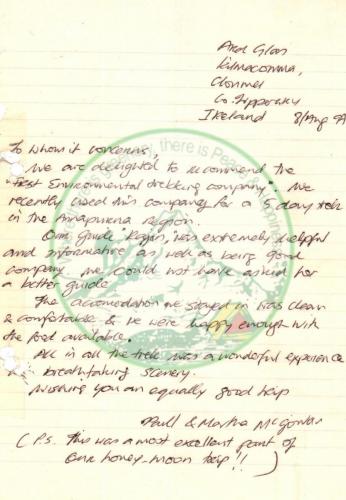 Ard Glas
Kilmacomma,
Clonmel
Co. Tipperary
Ireland 8/Aug 99
To whom it concerns,
We are delighted to recommend the
"First Environmental trekking company". We
recently used this company for a 5 day trek
in the Annapurna region.
Our Guide "Rajin," was extremely helpful
and informative as well as being good
company. We could not have asked for
a better guide
The accomodation we stayed in was clean
& comfortable & we were happy enough with
the food available.
All in all the trek was a wonderful experience
in breathtaking scenery.
Wishing you an equally good trip
Paul & Martha McGowan
(P.S. This was a most excellent part of
our honey-moon trip!!)
there is Peace